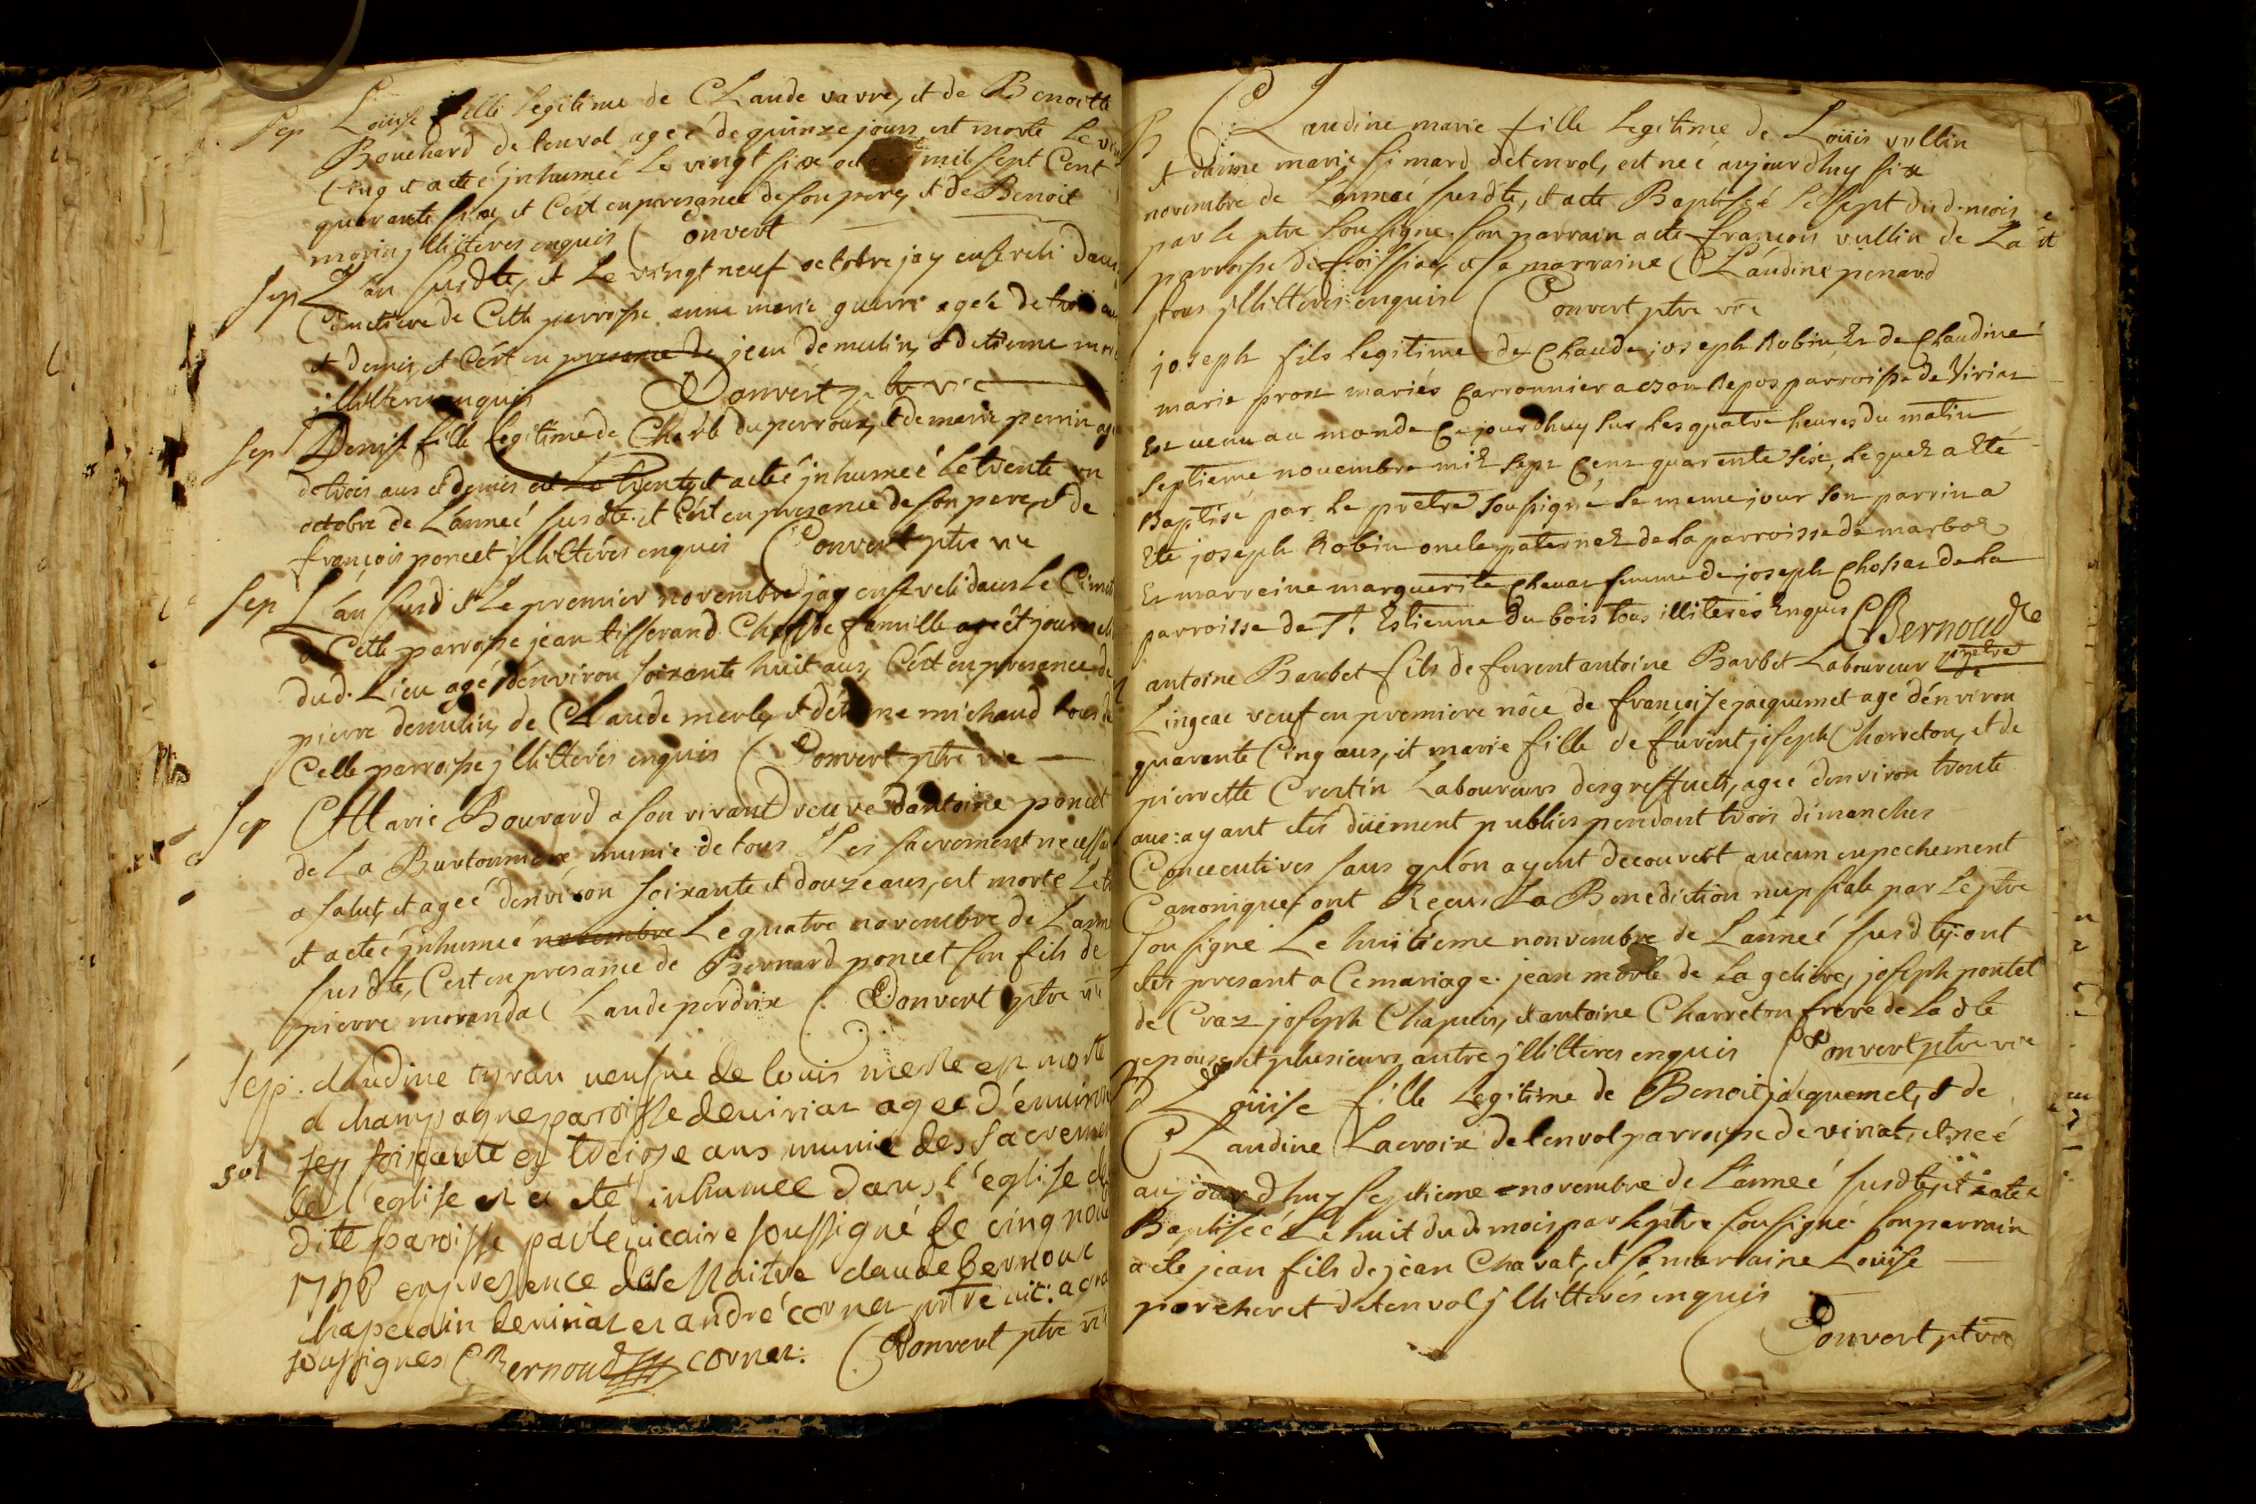 sep Loüise fille legitime de Claude vavre, et de Benoitte
Bouchard de tenvol ageé de quinze jours est morte le vin
cinq et a eté jnhumeé le vingt six mil sept cent
quarante six, et c'est en presance de son pere, et de Benoit
morin jllitteres enquis Convert
sep L'an susdte, et le vingt neuf octobre j'ay enseveli dans
Cimetiere de cette parroisse anne marie guerre ageé de trois ans
et demis, et c'ést en presance de jean demulin, et d'etienne
jllitteres enquis Convert
sep Denise fille legitime de Charle duperroux, et de marie perrin
de trois ans et demis est le trente, et a eté jnhumeé le trente un
octobre de L'anneé susdte. et c'ést en presance de son pere, et de
françois poncet jllittérés enquis Convert ptre vre
sep L'an susd et le premier novembre j'ay enseveli dans le
a cette parroisse jean tisserand chef de famille
dud. Lieu agé d'énviron soixante huit ans, c'ést en presence de
pierre demulin, de Claude merle, et d'étienne michaud tous de
Cette parroisse jllittérés enquis Convert ptre vre
sep Marie Bouvard a son vivant veuve d'antoine poncet
de La Burtonniere munie de tous les sacrement
a salut, et ageé d'énviron soixante et douze ans, est morte le
et a eté jnhumeé novembre Le quatre novembre de L'ann
susdte, c'est en presance de Bernard poncet son fils de
pierre morandat Claude perdrix Convert ptre vre
sep: claudine tyran veufue de louis mesle est morte
a champagne paroisse de viriat agée d'énuiron
sol sep soixante et treize ans munie des sacremen
de l'église et a eté inhumée dans l'église
dite paroisse par le vicaire soussigné le cinq
en presence de Maitre claude bernoud
chapelain de viriat et andré cornet
soussignes CBernoud cornet. Convert ptre
B Claudine marie fille legitime de Loüis vullin
et d'anne marie simard de tenvol, est neé aujourdhuy six
novembre de L'anneé susdte, et a eté Baptiseé le sept dud. mois
par le ptre soussigné son parrain a eté françois vullin de La
parroisse de foissiat, et sa marraine Claudine penard
tous jllittérés enquis Convert ptre vre
joseph fils legitime de Claude joseph Robin Et de Claudine
marie prost mariés a parroisse de Viriat
Est venu au monde Cejourdhuy sur les quatre heures du matin
septieme novembre mil sept Cent quarente Six, lequel a Eté
Baptisé par le prètre soussigné le meme jour son parrin a
Eté joseph Robin oncle paternel de la parroisse de marboz
Et marreine marguerite Chevat femme de joseph Chossat de la
parroisse de St. Estienne du bois tous illiterés Enquis CBernoud
prètre
antoine Barbet fils de furent antoine Barbet Laboureur
Lingeat veuf en premiere nôce de françoise jacquemet agé d'énviron
quarante Cinq ans, et marie fille de furent joseph Charreton, et de
pierrette Crestin Laboureurs des greffiets, ageé d'environ trente
ans: ayant étés düement publiés pendant trois dimanches
Concecutives sans qu'ón ayent decouvert aucun enpechement
Canonique, ont Recus La Benediction nupsiale par le ptre
soussigné Le huitieme nonvembre de L'anneé susdte y: ont
étés presant a Ce mariage. jean merle de La geliere, joseph pontet
de Craz joseph Chapuis, et antoine Charreton frere de La dte
epouse, et plusieurs autre jllitteres enquis Convert ptre vre
B Loüise fille Legitime de Benoit jacquemet, et de
Claudine Lacroix de tenvol parroisse de viriat, est neé
aujourdhuy septieme novembre de L'anneé susdte, et a eté
Baptiséé Le huit dud. mois par le ptre soussigné son parrain
a eté jean fils de jean Chavat, et sa marraine Loüise
porcheret de tenvol jllittérés enquis
Convert ptre